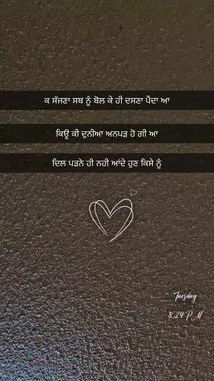 ਕ ਸੱਜਣਾ ਸਬ ਨੂੰ ਬੋਲ ਕੇ ਹੀ ਦਸਣਾ ਪੈਂਦਾ ਆ
ਕਿਉ ਕੀ ਦੁਨੀਆ ਅਨਪੜ ਹੋ ਗੀ ਆ
ਦਿਲ ਪੜਨੇ ਹੀ ਨਹੀ ਆਂਦੇ ਹੁਣ ਕਿਸੇ ਨੂੰ
Tuesday
8:24 P.M